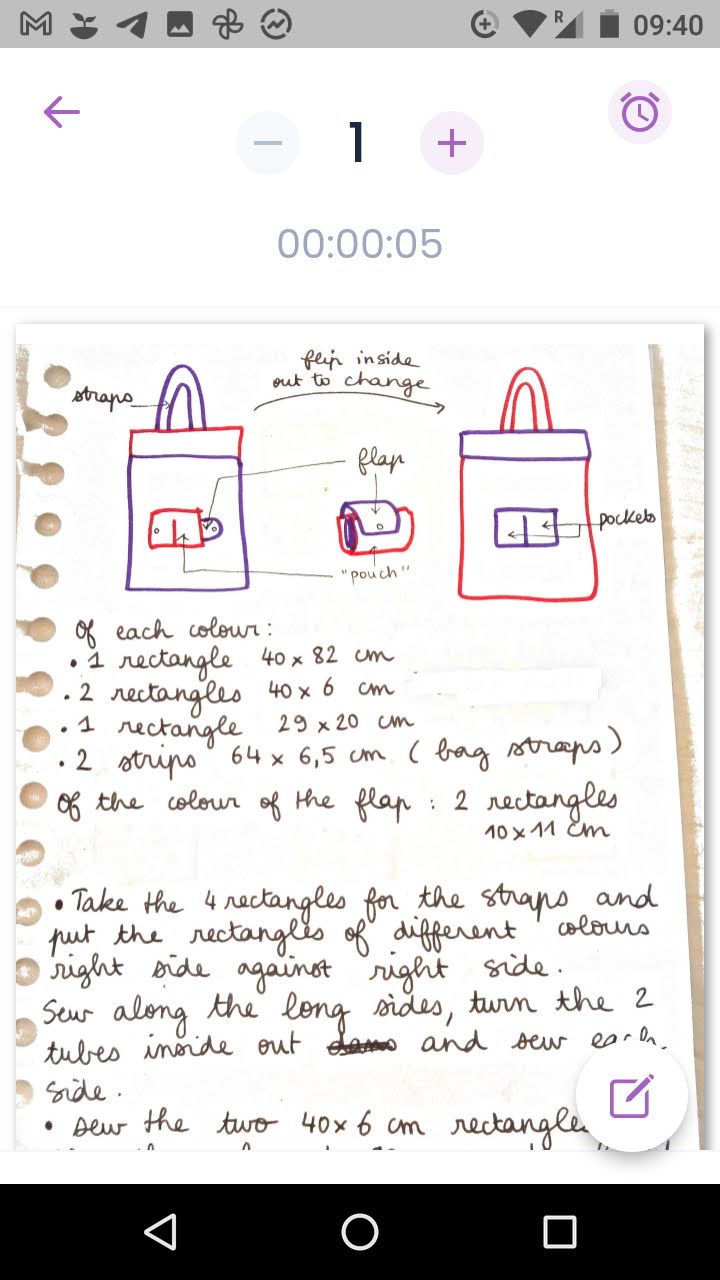 R
09:40
1
00:00:05
flip inside
out to change
straps
flap
pockets
"pouch"
of each colour:
• 1 rectangle 40 x 82 cm
• 2 rectangles 40 x 6 cm
• 1 rectangle 29 x 20 cm
• 2 strips 64 x 6,5 cm ( bag straps )
Of the colour of the flap : 2 rectangles
10 x 11 cm
• Take the 4 rectangles for the straps and
put the rectangles of different colours
right side against right side.
Sew along the long sides, turn the 2
tubes inside out and sew each
side.
• sew the two 40 x 6 cm